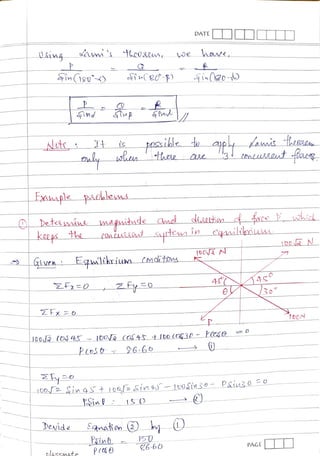 DATE
Using Lami's theorem, we have,
P = Q = R
Sin(180°-α) Sin(180°-β) Sin(180-γ)
P = Q = R
Sinα Sinβ Sinγ
Note : It is possible to apply Lamis theorem
only when there are 3 concurrent forces
Example problems
① Determine magnitude and direction of force P, which
keeps the concurrent system in equilibrium
100√2 N
⇒ Given : Equilibrium Conditions 100√2 N
ΣFx=0 , ΣFy=0 45° 45°
θ 30°
ΣFx=0 P 100N
100√2 cos45 - 100√2 cos45 + 100cos30 - Pcosθ = 0
Pcosθ = 86.60 → ①
ΣFy=0
100√2 Sin45 + 100√2 Sin45 - 100Sin30 - PSinθ = 0
PSinθ = 150 → ②
Devide Equation ② by ①
PSinθ = 150
Pcosθ 86.60
classmate PAGE